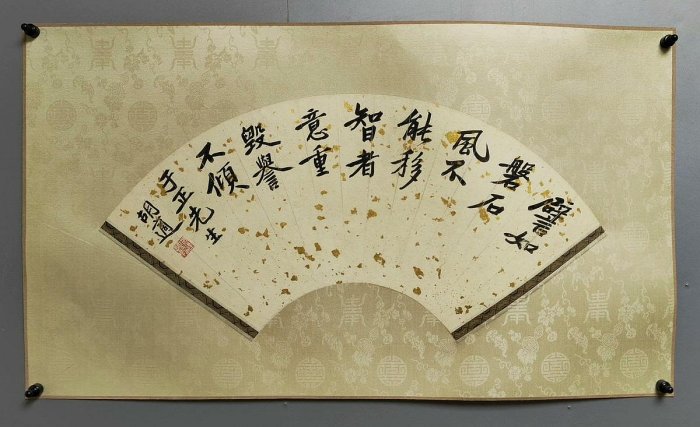 譬如
磐石
風不
能移
智者
意重
毀譽
不傾
于正先生
胡適